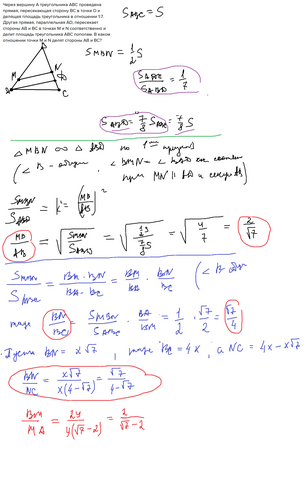 Через вершину A треугольника ABC проведена
прямая, пересекающая сторону BC в точке D и
делящая площадь треугольника в отношении 1:7.
Другая прямая, параллельная AD, пересекает
стороны AB и BC в точках M и N соответственно и
делит площадь треугольника ABC пополам. В каком
отношении точки M и N делят стороны AB и BC?
S_ABC = S
S_MBN = 1/2 S
S_ADC / S_ABD = 1/7
B
M
N
D
A
C
S_ABD = 7/8 S_ABC = 7/8 S
△MBN ∞ △ABD по 1
(∠B - общий, ∠BMN = ∠BAD как соотв
при MN || AD и секущ AB)
S_MBN / S_ABD = k² = (MB/AB)²
MB/AB = √(S_MBN / S_ABD) = √(1/2 S / 7/8 S) = √(4/7) = 2/√7
S_MBN / S_ABC = BM · BN / BA · BC = BM/BA · BN/BC (∠B общ
тогда BN/BC = S_MBN / S_ABC · BA/BM = 1/2 · √7/2 = √7/4
· Пусть BN = x√7, тогда BC = 4x, а NC = 4x - x√7
BN/NC = x√7 / x(4-√7) = √7 / 4-√7
BM/MA = 2y / y(√7-2) = 2 / √7-2